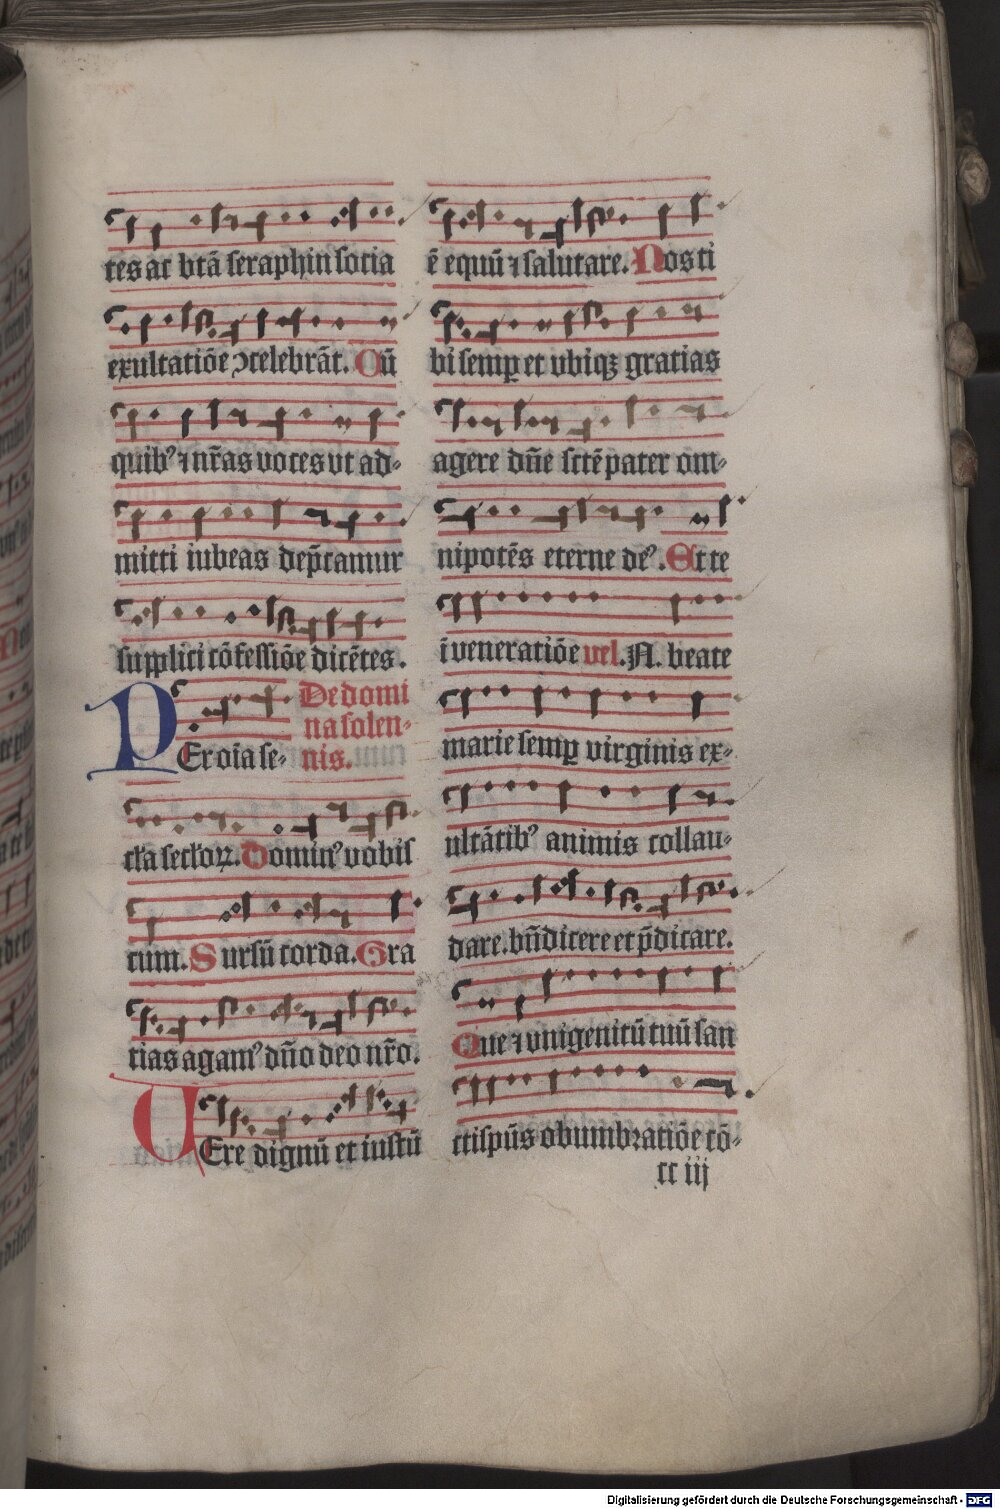 tes ac btã seraphin socia
exultatiõe ꝯcelebrãt. Cũ
quibꝰ ⁊ nr̃as voces vt ad-
mitti iubeas dep̃camur
suppliciꝯ cõfessiõe dicẽtes.
De domi
na solen-
nis.
PEr oĩa se-
cl'a secl'oꝝ. Dominꝰ vobis
cum. Sursũ corda. Gra
tias agamꝰ dño deo nr̃o.
VEre dignũ et iustũ
ẽ equũ ⁊ salutare. Nos ti
bi semꝑ et vbiqꝫ gratias
agere dñe sctẽ pater om-
nipotẽs eterne deꝰ. Et te
ĩ veneratiõe vel .N. beate
marie semꝑ virginis ex-
ultãtibꝰ animis collau-
dare. bñdicere et p̃dicare.
Que ⁊ vnigenitũ tuũ san
ctispũs obumbratiõe cõ-
cc iij
Digitalisierung gefördert durch die Deutsche Forschungsgemeinschaft - DFG